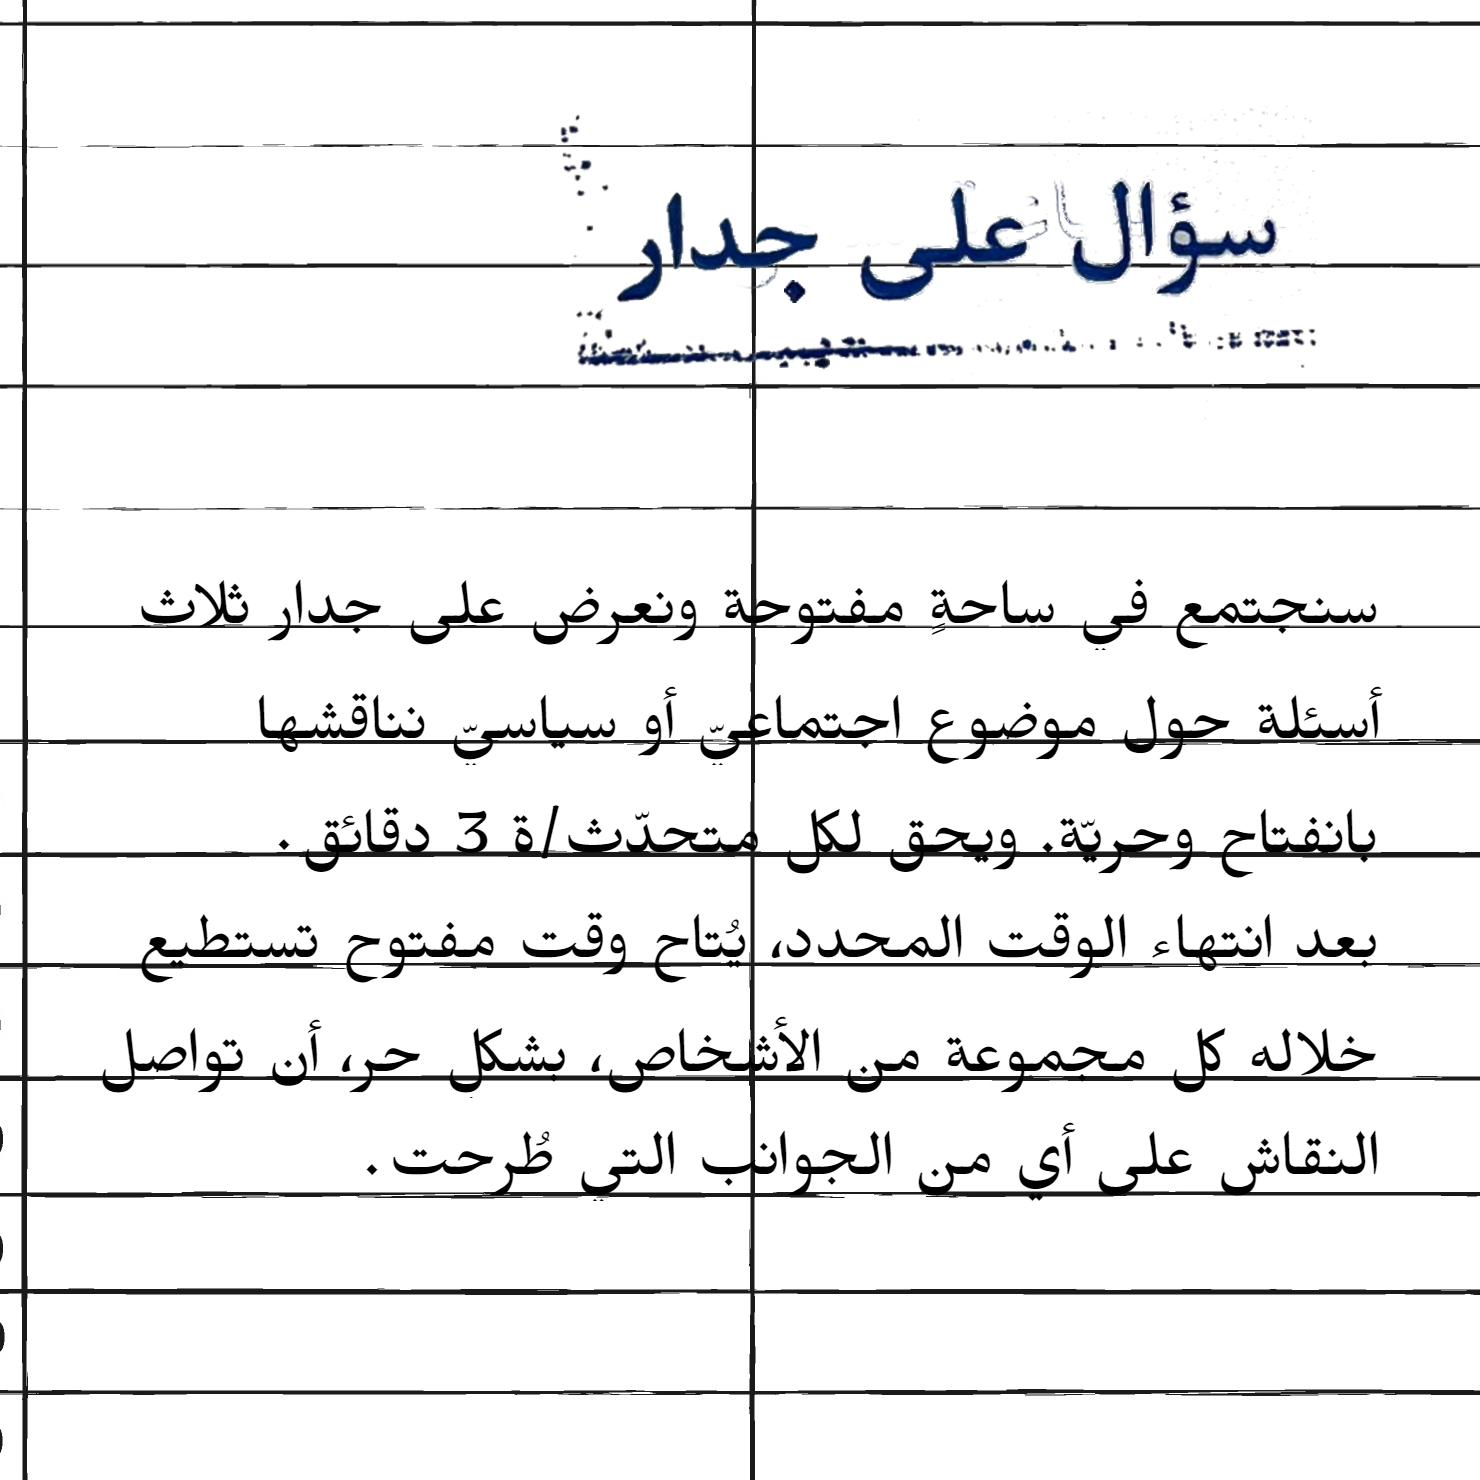 سؤال على جدار
سنجتمع في ساحةٍ مفتوحة ونعرض على جدار ثلاث
أسئلة حول موضوع اجتماعيّ أو سياسيّ نناقشها
بانفتاح وحريّة. ويحق لكل متحدّث/ة 3 دقائق.
بعد انتهاء الوقت المحدد، يُتاح وقت مفتوح تستطيع
خلاله كل مجموعة من الأشخاص، بشكلٍ حر، أن تواصل
النقاش على أي من الجوانب التي طُرحت.